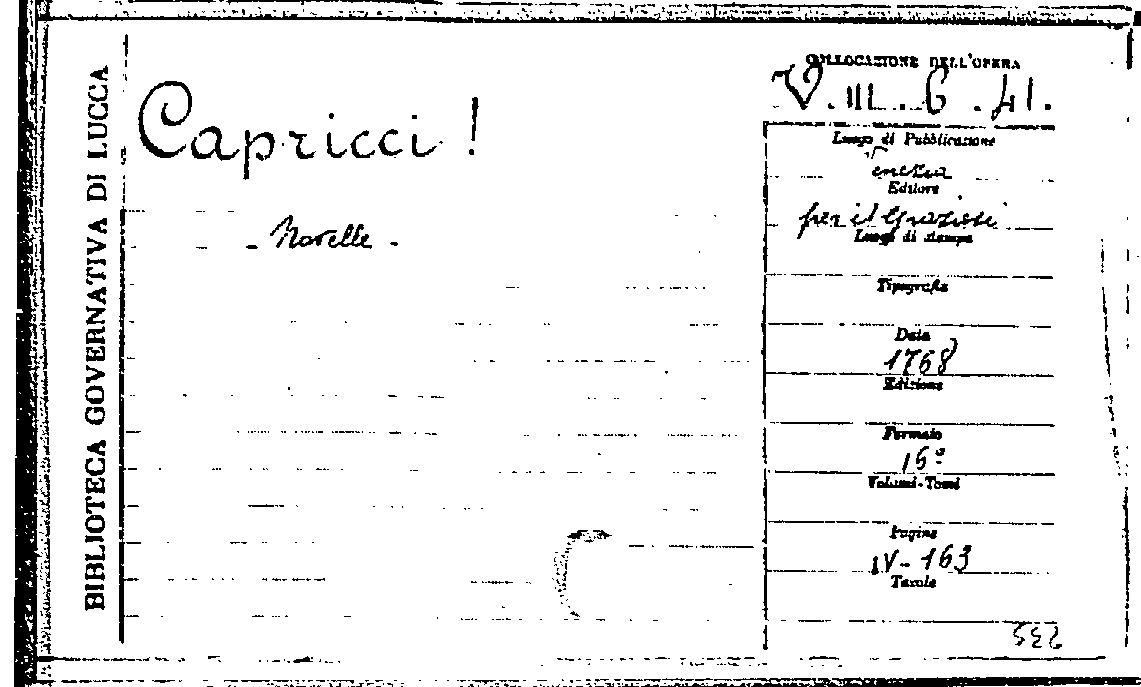 BIBLIOTECA GOVERNATIVA DI LUCCA
Capricci!
- Novelle -
COLLOCAZIONE DELL'OPERA
V. III. 6. 41.
Luogo di Pubblicazione
Venezia
Editore
per il Graziosi
Luogo di stampa
Tipografia
Data
1768
Edizione
Formato
16º
Volumi-Tomi
Pagine
IV-163
Tavole